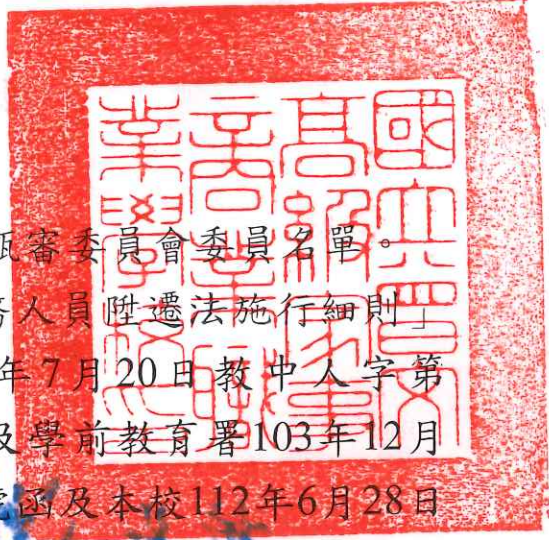 國立曾文
高級家事
商業職
業學校印
甄審委員會委員名單。
務人員陞遷法施行細則」
年7月20日教中人字第
及學前教育署103年12月
號函及本校112年6月28日